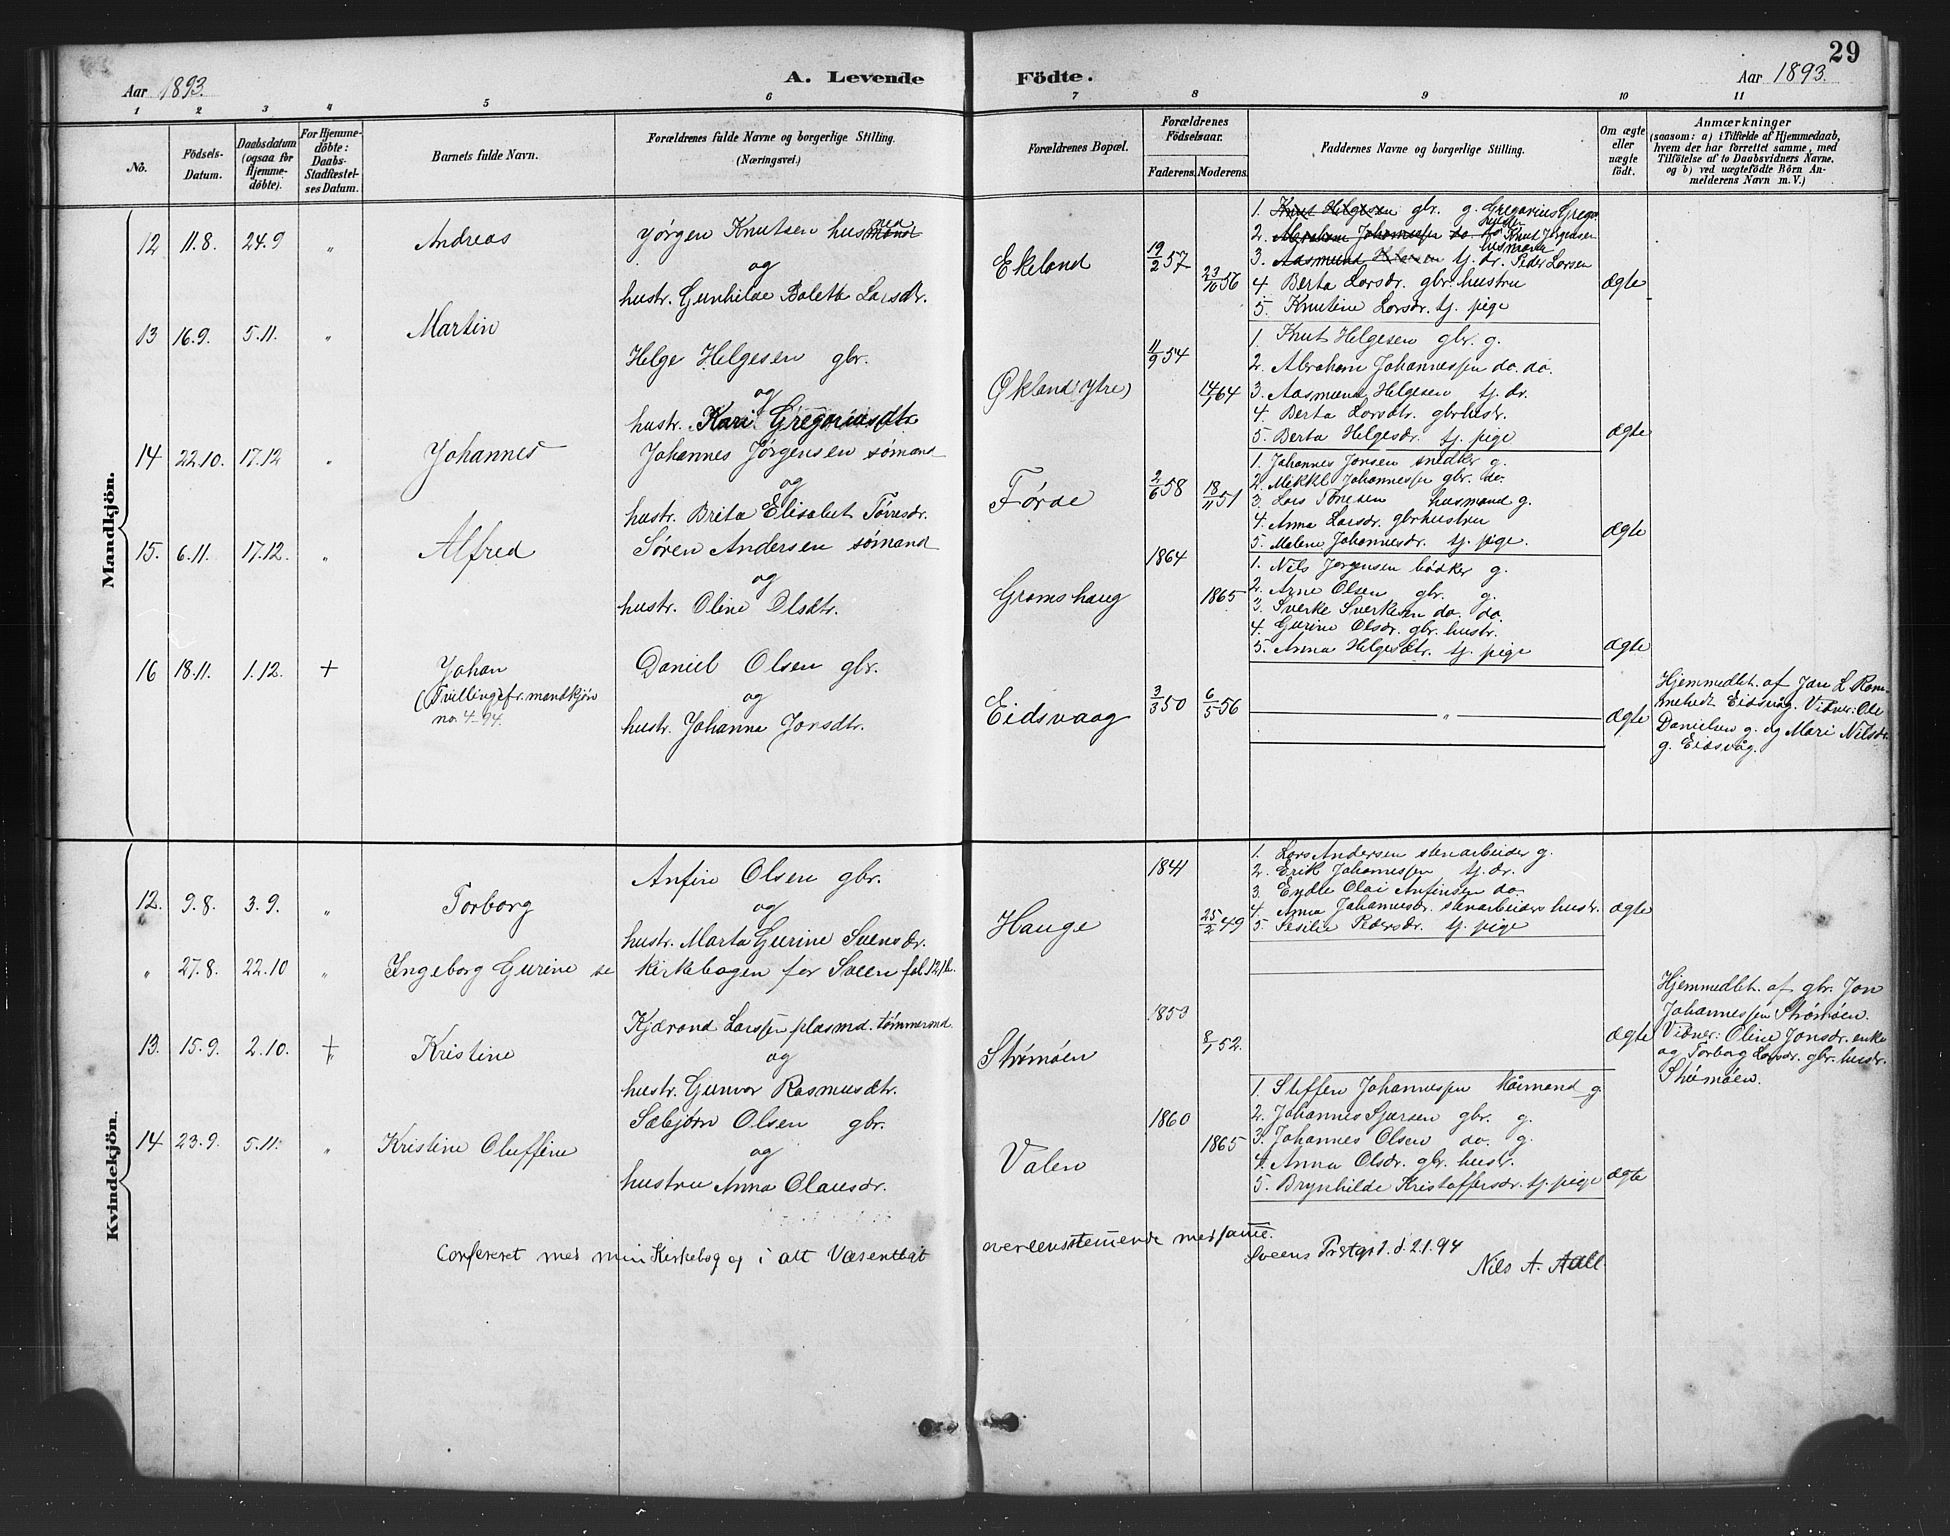 29
Aar 1893.
A. Levende Födte.
Aar 1893.
1 2 3 4 5 6 7 8 9 10 11
No.
Födsels-Datum.
Daabsdatum (ogsaa for Hjemme-döbte).
For Hjemme-döbte: Daabs-Stadfæstel-ses Datum.
Barnets fulde Navn.
Forældrenes fulde Navne og borgerlige Stilling.
(Næringsvei.)
Forældrenes Bopæl.
Forældrenes Födselsaar.
Faderens. Moderens.
Faddernes Navne og borgerlige Stilling.
Om ægte eller uægte født.
Anmærkninger
(saasom: a) i Tilfælde af Hjemmedaab,
hvem der har forrettet samme, med
Tilföielse af to Daabsvidners Navne,
og b) ved uægtefödte Börn An-
melderens Navn m. V.)
Mandkjön.
12 11.8. 24.9 " Andreas
Jörgen Knutsen husmand
og
hustr. Gunhilde Bolette Larsdr.
Ekeland
19/2 57
23/10 56
1. Knut Helgesen gbr. g. Gregorius Grego
2. Abraham Johannessen do. do. Knut Jörgensen
husmand
3. Aasmund Helgesen tj. dr. Peder Larsen
4 Berta Larsdr. gbr. hustru
5. Knutine Larsdr. tj. pige
ægte
13 16.9. 5.11. " Martin
Helge Helgesen gbr.
og
hustr. Kari Gregoriusdtr
Økland (ytre)
11/9 54
14/1 64
1. Knut Helgesen gbr. g.
2. Abraham Johannessen do. do.
3. Aasmund Helgesen tj. dr.
4. Berta Larsdtr. gbrhustr.
5. Berta Helgesdr. tj. pige
ægte
14 22.10. 17.12 " Johannes
Johannes Jørgensen sømand
og
hustr. Brita Elisabet Tørresdr.
Førde
2/6 58
18/11 51
1. Johannes Jonsen snedker g.
2. Mikkel Johannessen gbr. do.
3. Lars Tønesen husmand g.
4. Anna Larsdr. gbrhustru
5. Malene Johannesdr. tj. pige.
ægte
15. 6.11. 17.12. " Alfred
Søren Andersen sømand
og
hustr. Oline Olsdtr.
Gramshaug
1864
1865
1. Nils Jørgensen bødker g.
2. Arne Olsen gbr. g.
3. Sverke Sverkesen do. do.
4. Gurine Olsdr. gbr. hustr.
5. Anna Helgesdtr. tj. pige
ægte
16 18.11. 1.12. + Johan
(Tvilling se fr. mandkjøn
no. 4-94.
Daniel Olsen gbr.
og
hustr. Johanna Jonsdtr.
Eidsvaag
3/3 50
6/5 56
"
ægte
Hjemmedbt. af Jan L Rom-
metvedt Eidsvåg. Vidner: Ole
Danielsen g. og Mari Nilsdr.
g. Eidsvåg.
Kvindekjön.
12. 9.8. 3.9. " Torborg
Anfin Olsen gbr.
og
hustr. Marta Gurine Svensdr.
Hauge
1841
25/2 49
1. Lars Andersen stenarbeider g.
2. Erik Johannessen tj. dr.
3 Endle Olai Anfinsen do.
4. Anna Johannesdr. stenarbeiders hustr.
5. Sesilie Pedersdr. tj. pige
ægte
" 27.8. 22.10 " Ingeborg Gurine se kirkebogen for Sveen fol 121b.
13. 15.9. 2.10. + Kristine
Kjærand Larssen plasmd. tømmermd.
og
hustr. Gunvor Rasmusdtr.
Strømøen
1853
8/1 52.
ægte
Hjemmedbt. af gbr. Jon
Johannessen Strømøen.
Vidner: Oline Jonsdr. enke
og Torborg Larsdr. gbr. hustr.
Strømøen.
14 23.9. 5.11. " Kristine Oluffine
Sæbjørn Olsen gbr.
og
hustru Anna Olausdr.
Valen
1860
1865
1. Steffen Johannessen Kårmand g.
2. Johannes Sjursen gbr. g.
3. Johannes Olsen do. g.
4. Anna Olsdr. gbr. hustr.
5. Brynhilde Kristoffersdr. tj. pige
ægte
Confereret med min Kirkebog og i alt Væsentligt overensstemmende med samme.
Sveens Prstgd. d. 2.1.94
Nils A. Aall